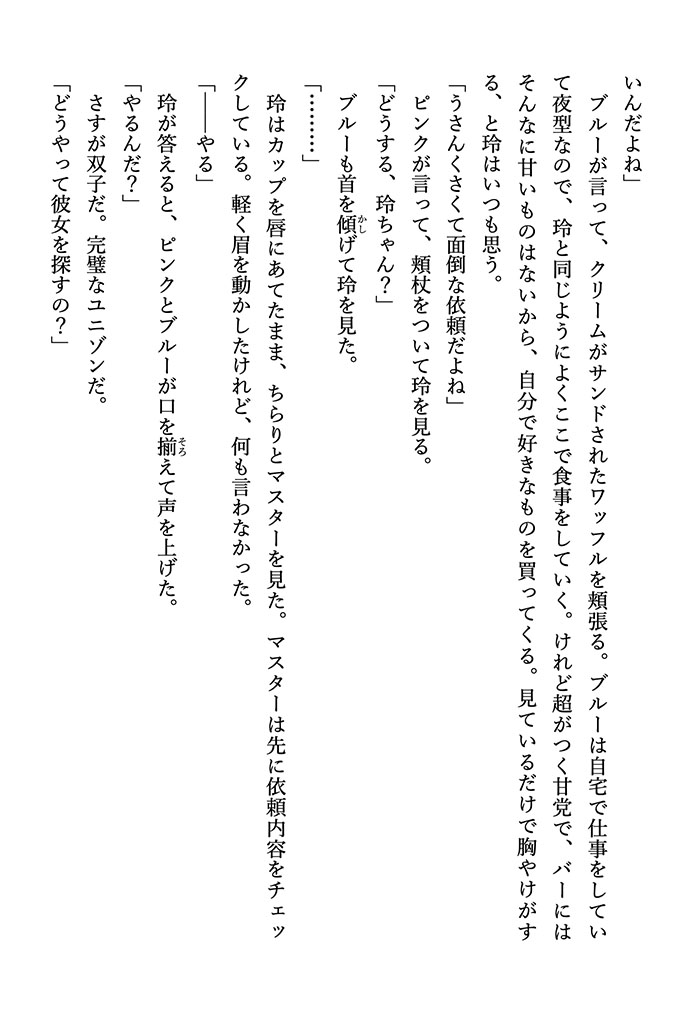 いんだよね」
　ブルーが言って、クリームがサンドされたワッフルを頬張る。ブルーは自宅で仕事をしてい
て夜型なので、玲と同じようによくここで食事をしていく。けれど超がつく甘党で、バーには
そんなに甘いものはないから、自分で好きなものを買ってくる。見ているだけで胸やけがす
る、と玲はいつも思う。
「うさんくさくて面倒な依頼だよね」
　ピンクが言って、頬杖をついて玲を見る。
「どうする、玲ちゃん？」
　ブルーも首を傾かしげて玲を見た。
「………」
　玲はカップを唇にあてたまま、ちらりとマスターを見た。マスターは先に依頼内容をチェッ
クしている。軽く眉を動かしたけれど、何も言わなかった。
「――やる」
　玲が答えると、ピンクとブルーが口を揃そろえて声を上げた。
「やるんだ？」
　さすが双子だ。完璧なユニゾンだ。
「どうやって彼女を探すの？」